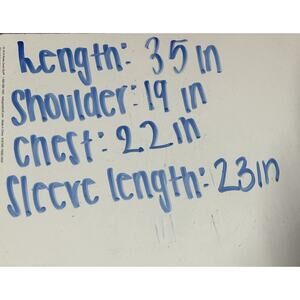 Length: 35 in
Shoulder: 19 in
Chest: 22 in
Sleeve length: 23in